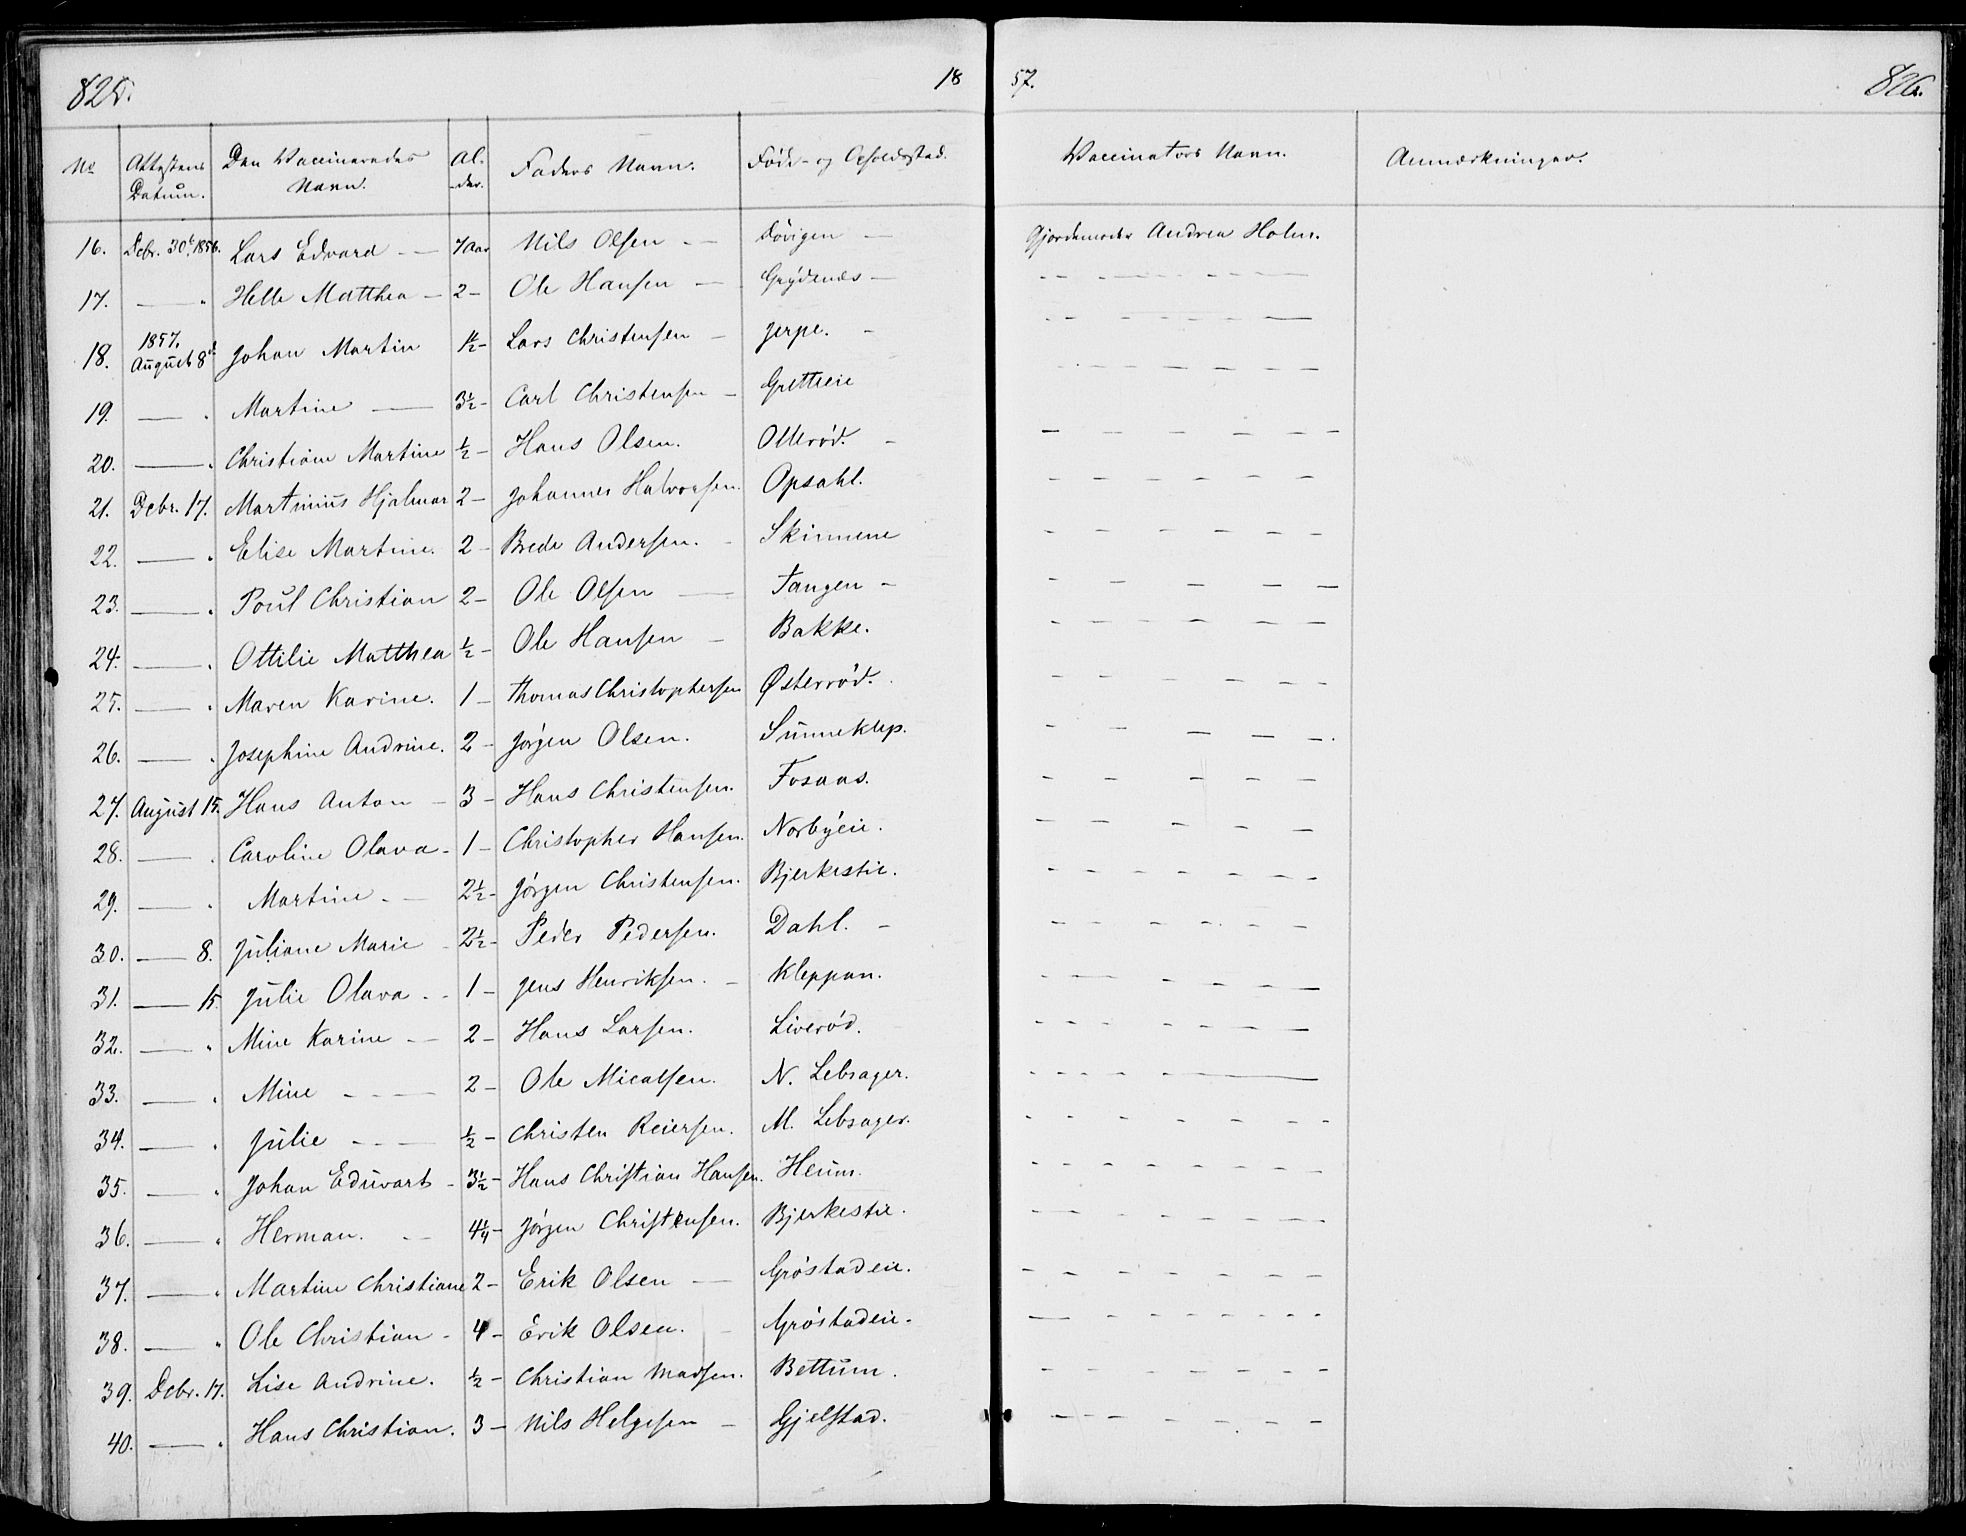 825. 18 57. 826.
No Attestens Datum. Den Vaccineredes Navn. Al-der. Faders Navn. Føde- og Opholdsstad. Vaccinators Navn. Anmærkninger.
16. Decbr. 30t. 1856. Lars Edvard — 7 Aar Nils Olsen — Løvigen — Gjordemoder Andrea Holm.
17. — " Helle Matthea — 2 — Ole Hansen — Grydenæs —
18. 1857. August 8d. Johan Martin 1½ — Lars Christensen — Jerpe. —
19. — " Martine — 3½ — Carl Christensen — Gretteeie
20. — " Christiane Martine ½ — Hans Olsen. Ollerød. —
21. Dcbr. 17. Martinius Hjalmar 2 — Johannes Halvorsen. Opsahl.
22. — " Elise Martine. 2 — Brede Andersen. — Skinnene
23. — " Poul Christian 2 — Ole Olsen — Tangen —
24. — " Ottilie Matthea ½ — Ole Hansen — Bakke.
25. — " Maren Karine. 1 — Thomas Christophersen Østerrød.
26. — " Josephine Andrine. 2 — Jørgen Olsen. Sunneklep.
27. August 15. Hans Anton — 3 — Hans Christensen. Fosaas.
28. — " Caroline Olava — 1 — Christopher Hansen. Norbyeie.
29. — " Martine. — 2½ — Jørgen Christensen. Bjerkestie.
30. — 8. Juliane Marie — 2½ — Peder Pedersen. Dahl. —
31. — 15. Julie Olava — 1 — Jens Henriksen. — Kleppan.
32. — " Mine Karine — 2 — Hans Larsen. Liverød.
33. — " Mine — 2 — Ole Micalsen. N. Lebsager.
34. — " Julie — ½ — Christen Reiersen. M. Lebsager.
35. — " Johan Eduvart — 3½ — Hans Christian Hansen. Heum.
36. — " Herman. — 4¼ — Jørgen Christensen. Bjerkestie.
37. — " Martine Christiane 2 — Erik Olsen — Grøstadeie.
38. — " Ole Christian — 4 — Erik Olsen. — Grøstadeie.
39. Dcbr. 17. Lise Andrine. ½ — Christian Madsen. Bettum.
40. — " Hans Christian. 3 — Nils Helgesen — Gjelstad.